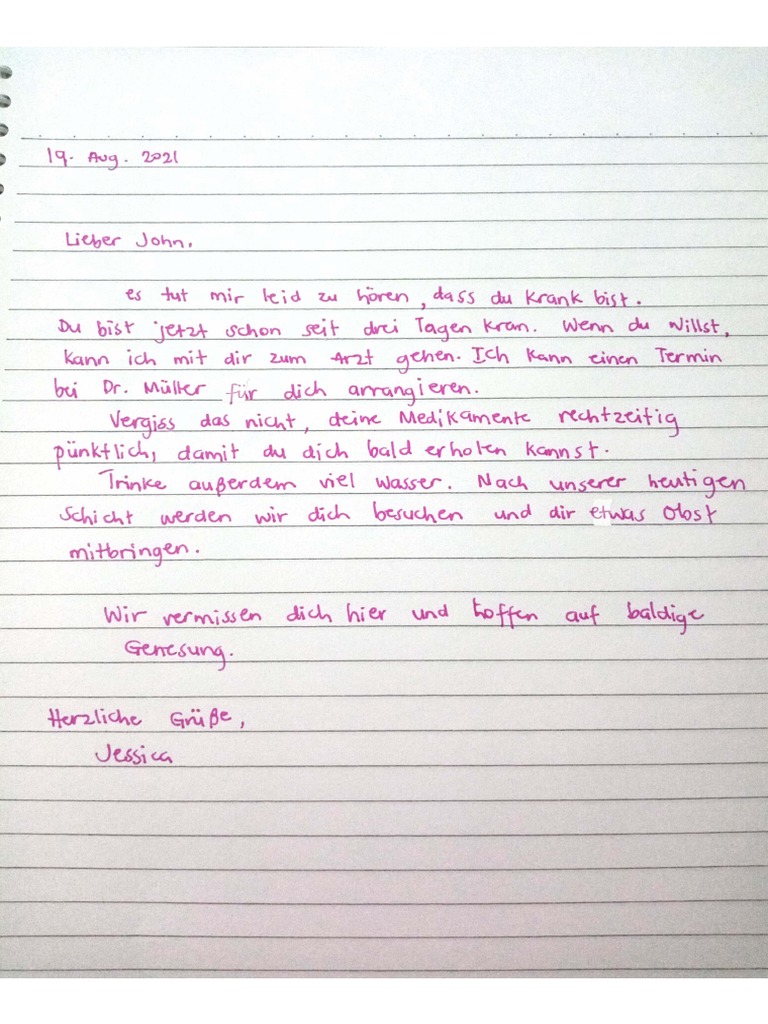 19. Aug. 2021
Lieber John,
es tut mir leid zu hören, dass du krank bist.
Du bist jetzt schon seit drei Tagen kran. Wenn du willst,
kann ich mit dir zum Arzt gehen. Ich kann einen Termin
bei Dr. Müller für dich arrangieren.
Vergiss das nicht, deine Medikamente rechtzeitig
pünktlich, damit du dich bald erholen kannst.
Trinke außerdem viel Wasser. Nach unserer heutigen
Schicht werden wir dich besuchen und dir etwas Obst
mitbringen.
Wir vermissen dich hier und hoffen auf baldige
Genesung.
Herzliche Grüße,
Jessica